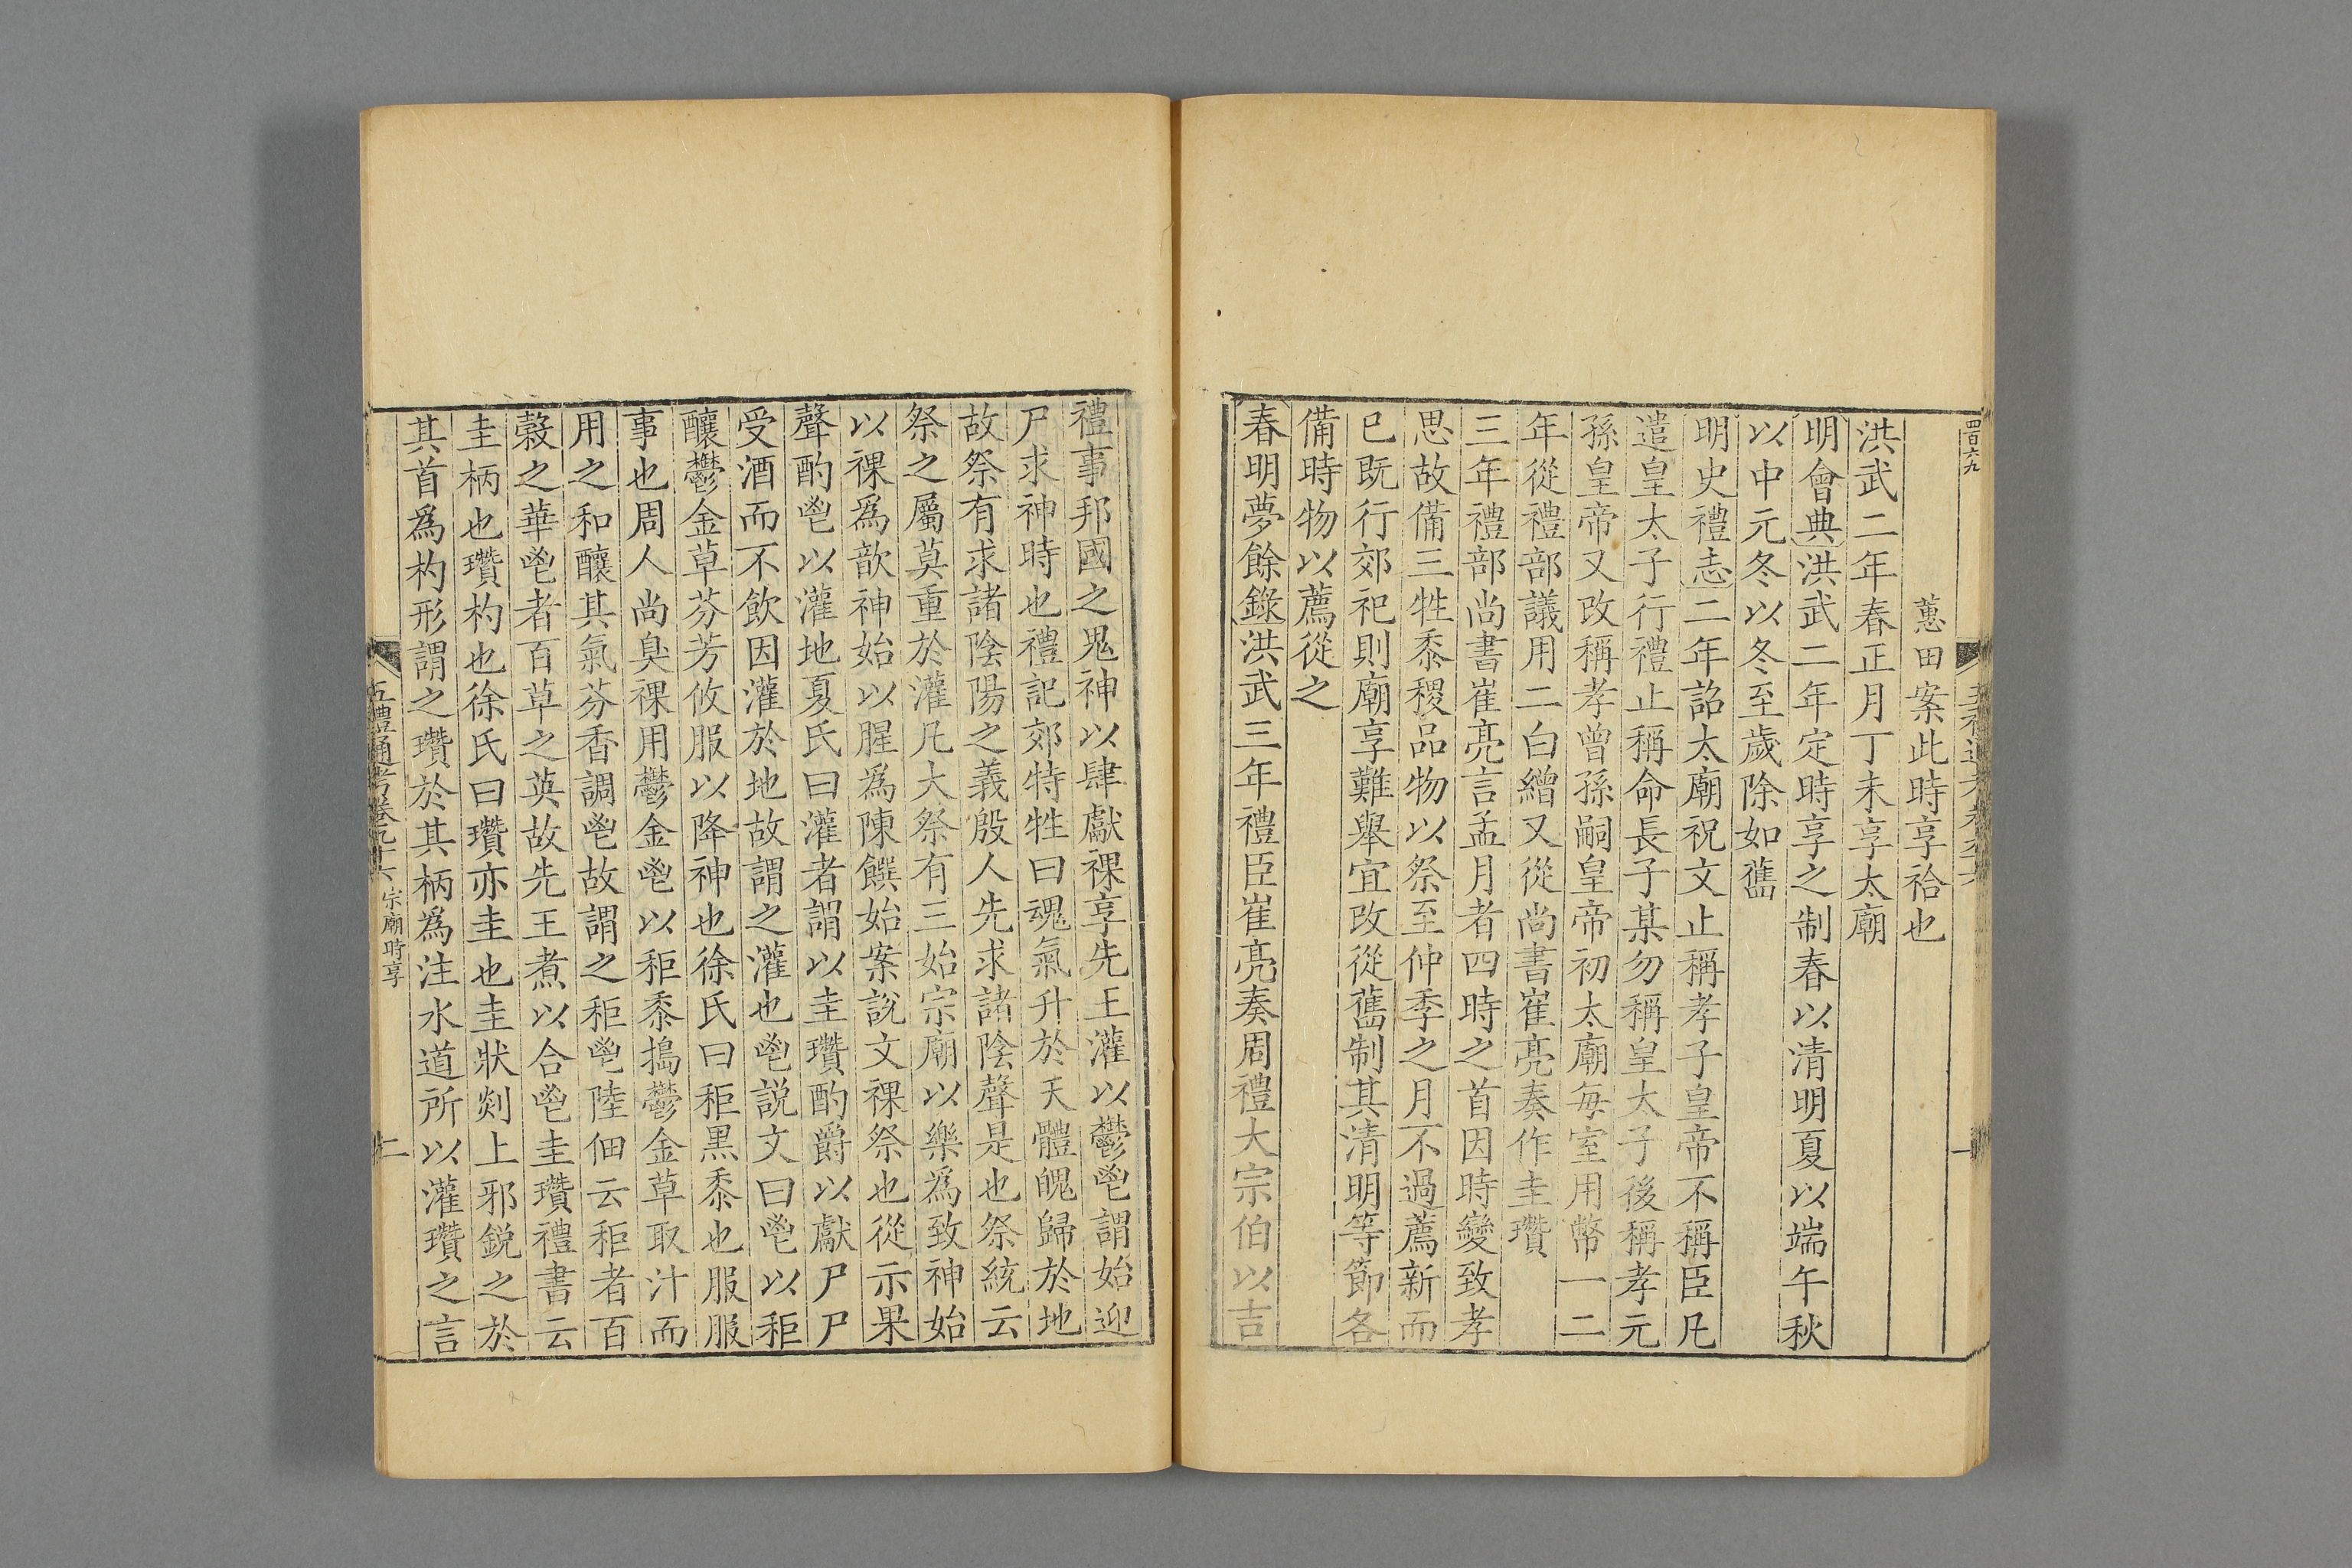 四百六九
蕙田案此時享祫也
洪武二年春正月丁未享太廟
明會典洪武二年定時享之制春以清明夏以端午秋
以中元冬以冬至歲除如舊
明史禮志二年詔太廟祝文止稱孝子皇帝不稱臣凡
遣皇太子行禮止稱命長子某勿稱皇太子後稱孝元
孫皇帝又改稱孝曾孫嗣皇帝初太廟每室用幣一二
年從禮部議用二白繒又從尚書崔亮奏作圭瓚
三年禮部尚書崔亮言孟月者四時之首因時變致孝
思故備三牲黍稷品物以祭至仲季之月不過薦新而
已既行郊祀則廟享難舉宜改從舊制其清明等節各
備時物以薦從之
春明夢餘錄洪武三年禮臣崔亮奏周禮大宗伯以吉
禮事邦國之鬼神以肆獻祼享先王灌以鬱鬯謂始迎
尸求神時也禮記郊特牲曰魂氣升於天體魄歸於地
故祭有求諸陰陽之義殷人先求諸陰聲是也祭統云
祭之屬莫重於灌凡大祭有三始宗廟以樂為致神始
以祼爲歆神始以腥爲陳饌始案說文祼祭也從示果
聲酌鬯以灌地夏氏曰灌者謂以圭瓚酌爵以獻尸尸
受酒而不飲因灌於地故謂之灌也鬯說文曰鬯以秬
釀鬱金草芬芳攸服以降神也徐氏曰秬黑黍也服服
事也周人尚臭祼用鬱金鬯以秬黍搗鬱金草取汁而
用之和釀其氣芬香調鬯故謂之秬鬯陸佃云秬者百
穀之華鬯者百草之英故先王煮以合鬯圭瓚禮書云
圭柄也瓚杓也徐氏曰瓚亦圭也圭狀剡上邪銳之於
其首爲杓形謂之瓚於其柄爲注水道所以灌瓚之言
五禮通考卷九十六 宗廟時享 二